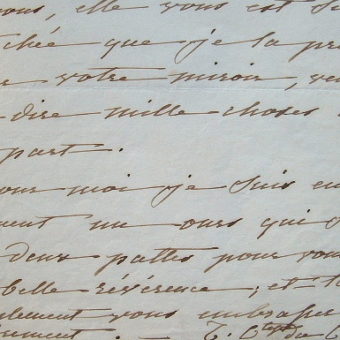 ous, elle vous est si
chée que je la pr
votre miroir, ve
dire mille choses
part.
our moi je suis en
ment un ours qui s
deux pattes pour vou
belle révérence; et t
lement vous embrasser
rement. — T. C